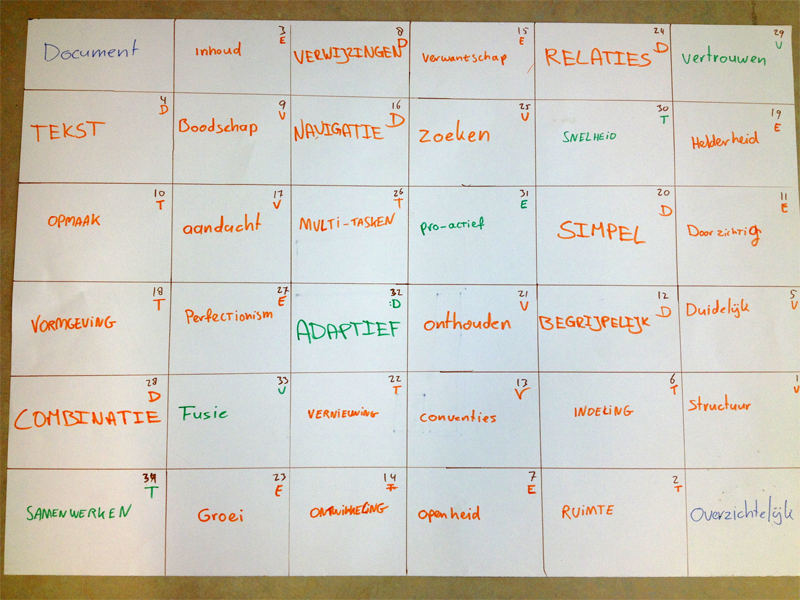 Document
3
E
inhoud
8
VERWIJZINGEN D
15
E
verwantschap
24
RELATIES D
29
V
vertrouwen
4
D
TEKST
9
V
Boodschap
16
NAVIGATIE D
25
V
zoeken
30
T
SNELHEID
19
E
Helderheid
10
T
OPMAAK
17
V
aandacht
26
T
MULTI-TASKEN
31
E
pro-actief
20
D
SIMPEL
11
E
Doorzichtig
18
T
VORMGEVING
27
E
Perfectionism
32
:D
ADAPTIEF
21
V
onthouden
12
D
BEGRIJPELIJK
5
V
Duidelijk
28
D
COMBINATIE
33
V
Fusie
22
T
VERNIEUWING
13
V
conventies
6
T
INDELING
1
V
Structuur
34
T
SAMENWERKEN
23
E
Groei
14
T
ONTWIKKELING
7
E
openheid
2
T
RUIMTE
Overzichtelijk